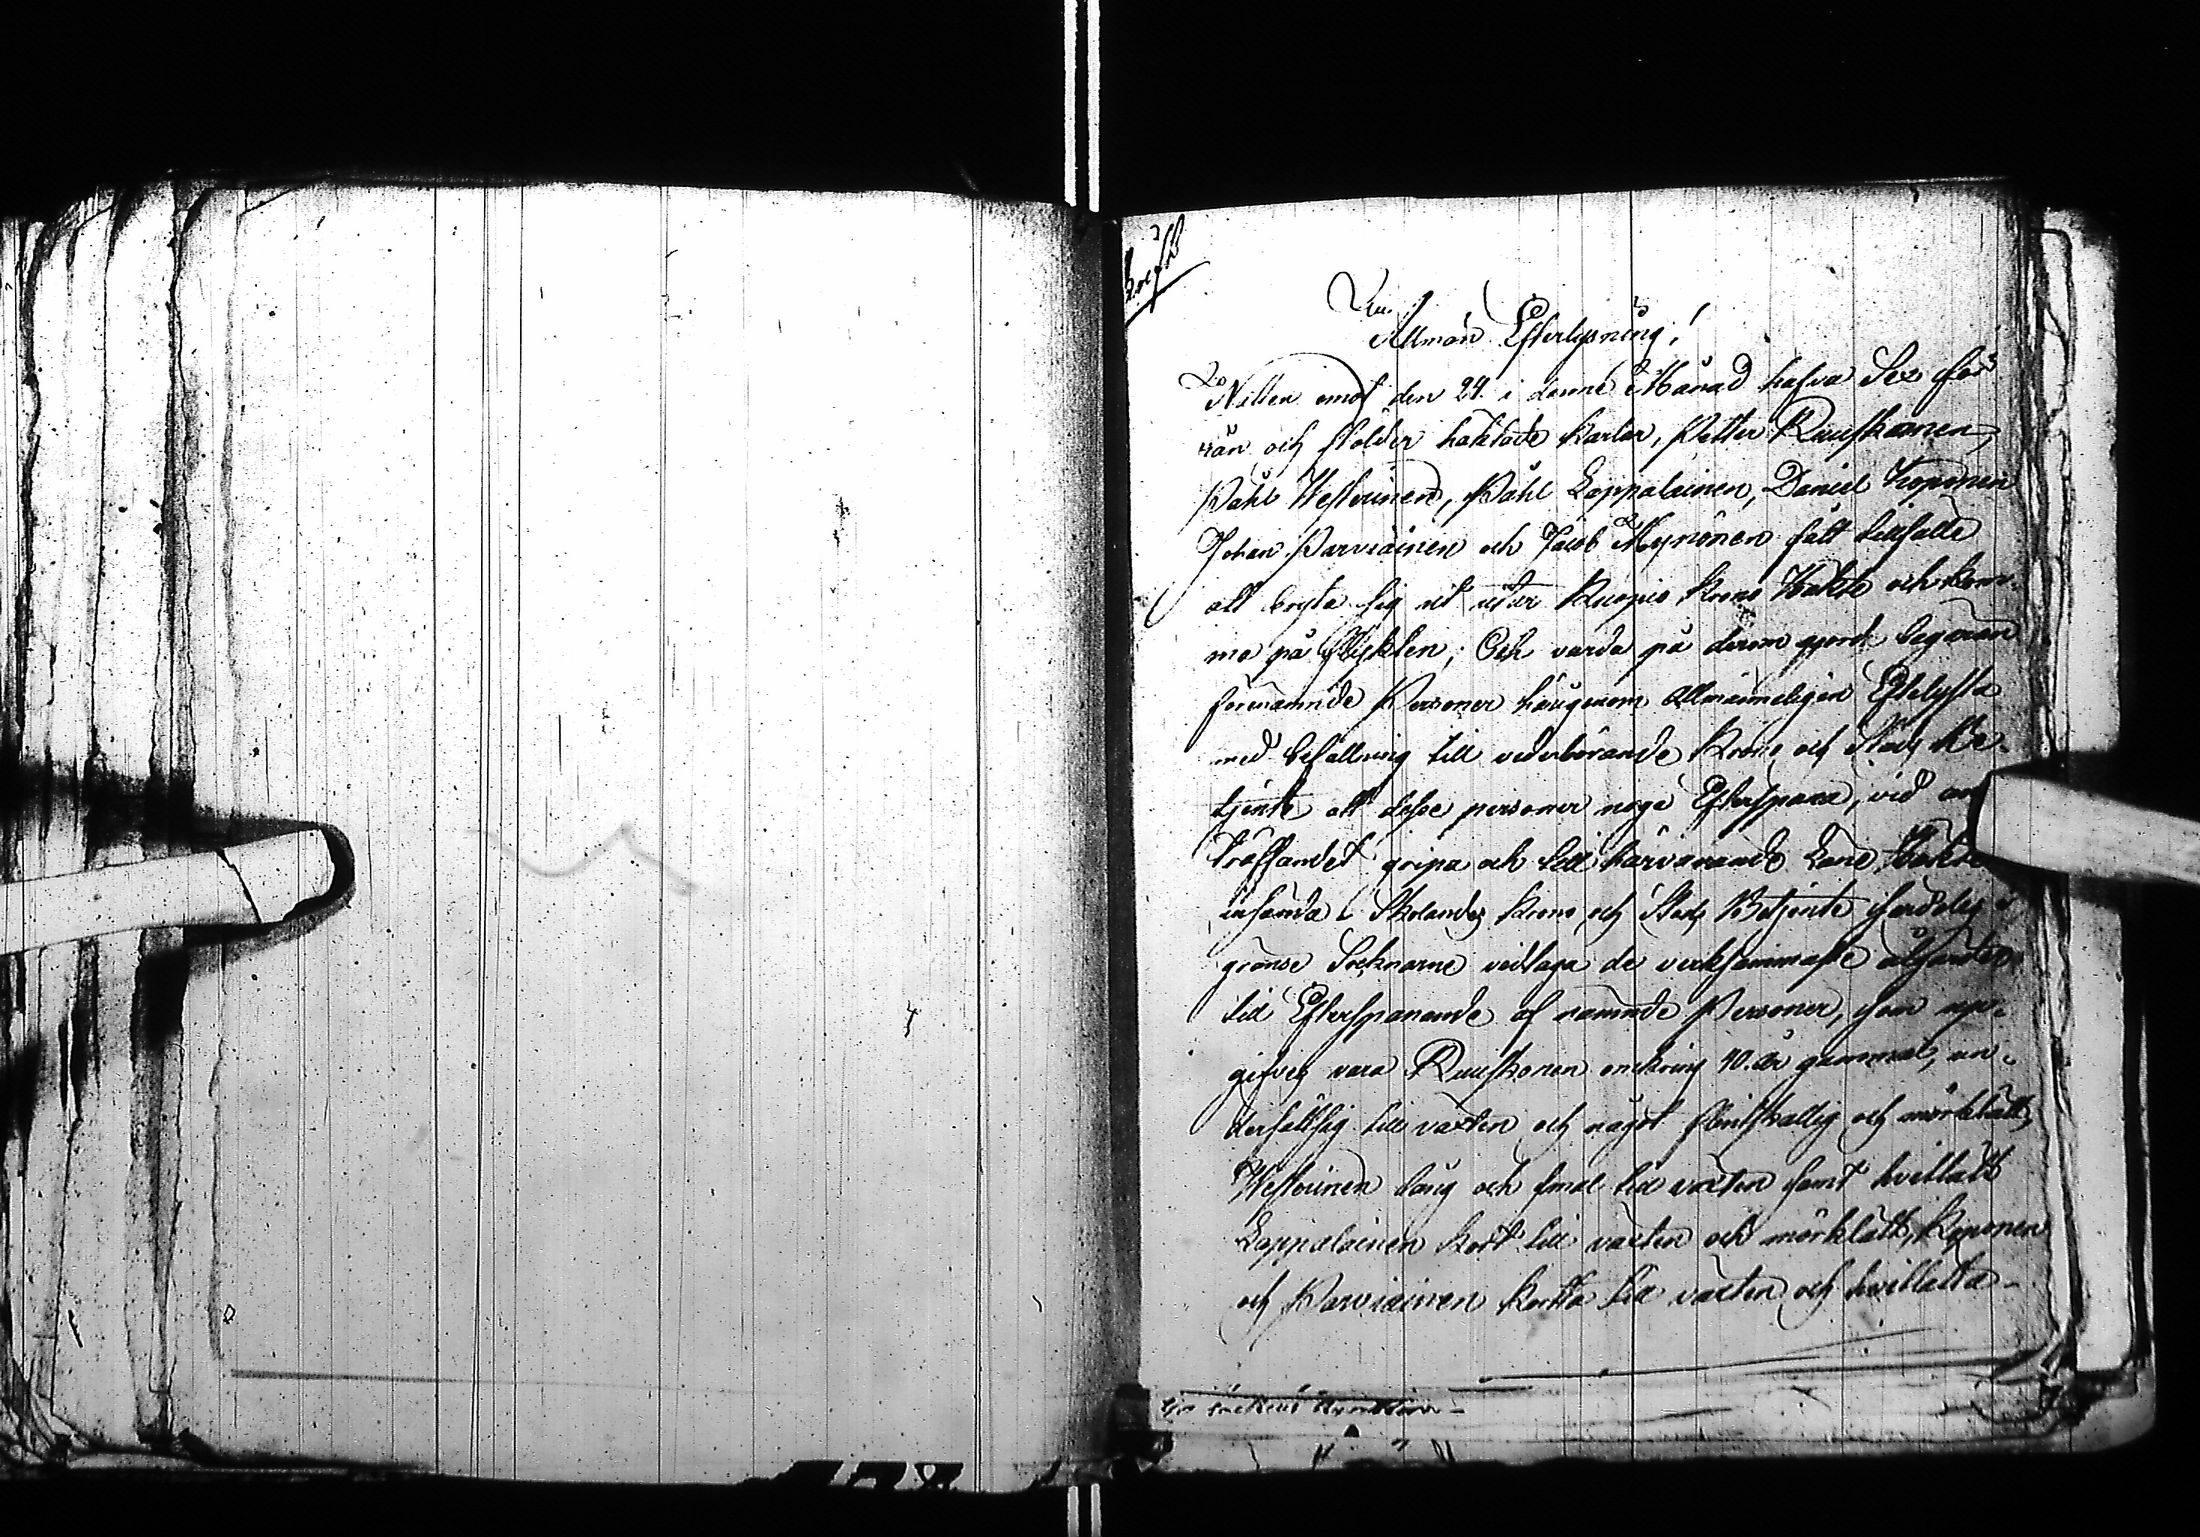 Allmän Efterlysning!
Natten emot den 24. i denne Månad hafva Sex för
rån och stölder häktade karlar, Petter Ruuskanen,
Påhl Westerinen, Påhl Lappalainen, Daniel Koponen
Johan Parviainen och Jacob Mynönen fått tillfälle
att bryta sig ut utur Kuopio Krono Häkte och kom-
ma på flykten; Och varda på derom gjord begäran
förenämnde Personer härigenom Allmänneligen Efterlysta
med befallning till vederbörande Krono och Stads Be-
tjente att desse personer noga Efterspana, vid an
träffandet gripa och till härvarande Läns Häkte
insända Skolandes Krono och Stads Betjente
gränse Socknarne vidtaga de verksammaste åtgärder
till Efterspanande af nämnde Personer, som upp-
gifves vara Ruuskonen omkring 40. år gammal, un-
dersättsig till växten och något flintskallig och mörklätt,
Westerinen lång och smal till växten samt hvitlätt
Lappalainen kort till växten och mörklätt, Koponen
och Parviainen korta till växten och hvitlätta -